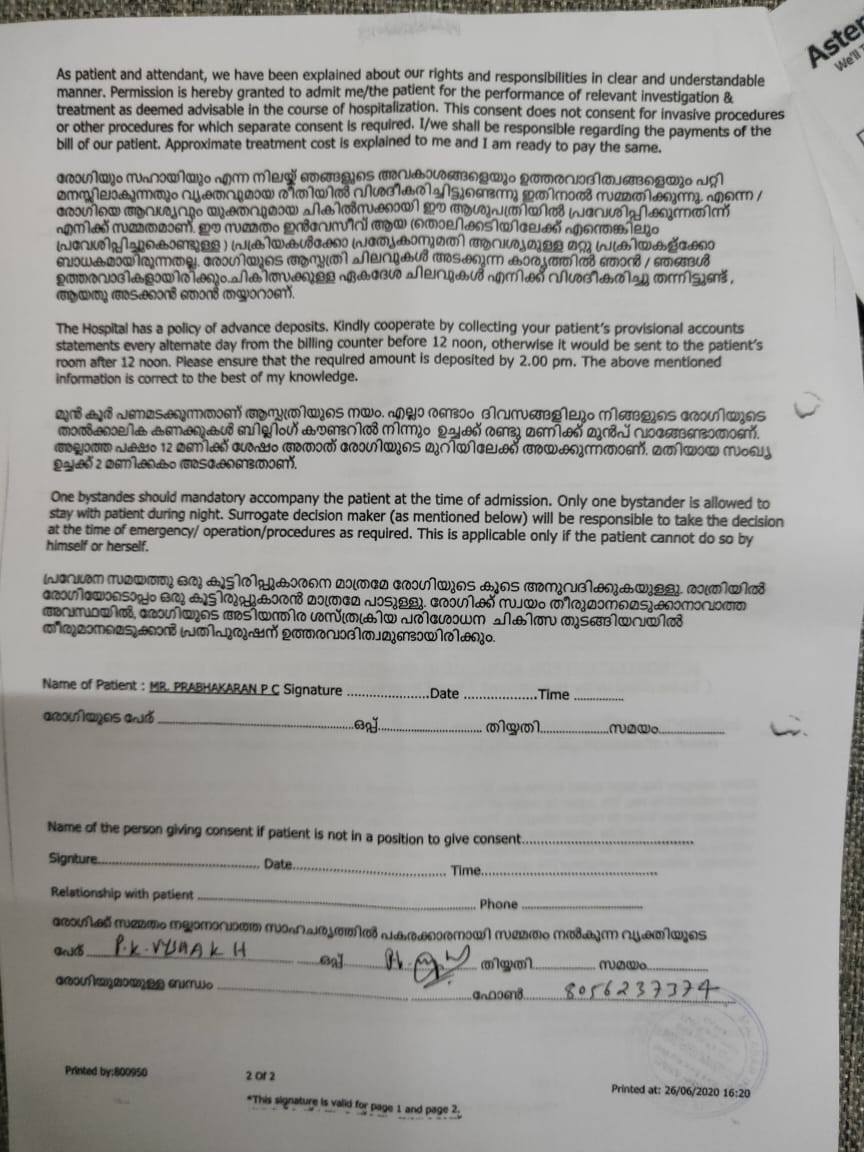 Aster
We'll
As patient and attendant, we have been explained about our rights and responsibilities in clear and understandable
manner. Permission is hereby granted to admit me/the patient for the performance of relevant investigation &
treatment as deemed advisable in the course of hospitalization. This consent does not consent for invasive procedures
or other procedures for which separate consent is required. I/we shall be responsible regarding the payments of the
bill of our patient. Approximate treatment cost is explained to me and I am ready to pay the same.
രോഗിയും സഹായിയും എന്ന നിലയ്ക്ക് ഞങ്ങളുടെ അവകാശങ്ങളെയും ഉത്തരവാദിത്വങ്ങളെയും പറ്റി
മനസ്സിലാകുന്നതും വ്യക്തവുമായ രീതിയിൽ വിശദീകരിച്ചിട്ടുണ്ടെന്നു ഇതിനാൽ സമ്മതിക്കുന്നു. എന്നെ /
രോഗിയെ ആവശ്യവും യുക്തവുമായ ചികിൽസക്കായി ഈ ആശുപത്രിയിൽ പ്രവേശിപ്പിക്കുന്നതിന്
എനിക്ക് സമ്മതമാണ്. ഈ സമ്മതം ഇൻവേസീവ് ആയ (തൊലിക്കടിയിലേക്ക് എന്തെങ്കിലും
പ്രവേശിപ്പിച്ചുകൊണ്ടുള്ള ) പ്രക്രിയകൾക്കോ പ്രത്യേകാനുമതി ആവശ്യമുള്ള മറ്റു പ്രക്രിയകള്ക്കോ
ബാധകമായിരുന്നതല്ല. രോഗിയുടെ ആസ്പത്രി ചിലവുകൾ അടക്കുന്ന കാര്യത്തിൽ ഞാൻ / ഞങ്ങൾ
ഉത്തരവാദികളായിരിക്കും.ചികിത്സക്കുള്ള ഏകദേശ ചിലവുകൾ എനിക്ക് വിശദീകരിച്ചു തന്നിട്ടുണ്ട് ,
ആയതു അടക്കാൻ ഞാൻ തയ്യാറാണ്.
The Hospital has a policy of advance deposits. Kindly cooperate by collecting your patient's provisional accounts
statements every alternate day from the billing counter before 12 noon, otherwise it would be sent to the patient's
room after 12 noon. Please ensure that the required amount is deposited by 2.00 pm. The above mentioned
information is correct to the best of my knowledge.
മുൻ‌കൂർ പണമടക്കുന്നതാണ് ആസ്പത്രിയുടെ നയം. എല്ലാ രണ്ടാം ദിവസങ്ങളിലും നിങ്ങളുടെ രോഗിയുടെ
താൽക്കാലിക കണക്കുകൾ ബില്ലിംഗ് കൗണ്ടറിൽ നിന്നും ഉച്ചക്ക് രണ്ടു മണിക്ക് മുൻപ് വാങ്ങേണ്ടാതാണ്.
അല്ലാത്ത പക്ഷം 12 മണിക്ക് ശേഷം അതാത് രോഗിയുടെ മുറിയിലേക്ക് അയക്കുന്നതാണ്. മതിയായ സംഖ്യ
ഉച്ചക്ക് 2 മണിക്കകം അടക്കേണ്ടതാണ്.
One bystandes should mandatory accompany the patient at the time of admission. Only one bystander is allowed to
stay with patient during night. Surrogate decision maker (as mentioned below) will be responsible to take the decision
at the time of emergency/ operation/procedures as required. This is applicable only if the patient cannot do so by
himself or herself.
പ്രവേശന സമയത്തു ഒരു കൂട്ടിരിപ്പുകാരനെ മാത്രമേ രോഗിയുടെ കൂടെ അനുവദിക്കുകയുള്ളു. രാത്രിയിൽ
രോഗിയോടൊപ്പം ഒരു കൂട്ടിരുപ്പുകാരൻ മാത്രമേ പാടുള്ളു. രോഗിക്ക് സ്വയം തീരുമാനമെടുക്കാനാവാത്ത
അവസ്ഥയിൽ, രോഗിയുടെ അടിയന്തിര ശസ്ത്രക്രിയ പരിശോധന ചികിത്സ തുടങ്ങിയവയിൽ
തീരുമാനമെടുക്കാൻ പ്രതിപുരുഷന് ഉത്തരവാദിത്വമുണ്ടായിരിക്കും.
Name of Patient : MR. PRABHAKARAN P C Signature .....................Date ..................Time ............
രോഗിയുടെ പേര് ................................................ഒപ്പ്.......................... തിയ്യതി.................സമയം................
Name of the person giving consent if patient is not in a position to give consent...........................................
Signture........................................ Date...................................... Time............................................
Relationship with patient ...................................................................... Phone ..............................
രോഗിക്ക് സമ്മതം നല്ലാനാവാത്ത സാഹചര്യത്തിൽ പകരക്കാരനായി സമ്മതം നൽകുന്ന വ്യക്തിയുടെ
പേര് P.K.VYSHAKH ഒപ്പ് തിയ്യതി............... സമയം...............
രോഗിയുമായുള്ള ബന്ധം ............................................ ഫോൺ.......... 8056237374
Printed by:800950
2 Of 2
Printed at: 26/06/2020 16:20
*This signature is valid for page 1 and page 2.